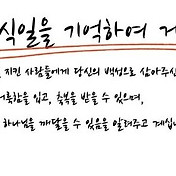 식일을 기억하여 거
지킨 사람들에게 당신의 백성으로 삼아주신
거룩함을 입고, 축복을 받을 수 있으며,
하나님을 깨달을 수 있음을 알려주고 계십니